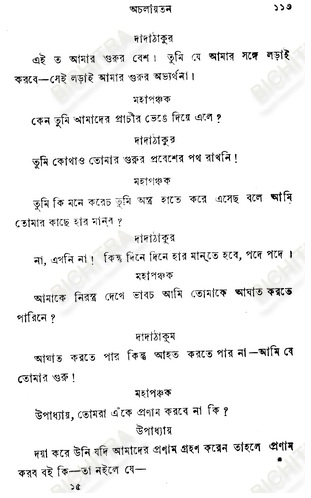 অচলায়তন ১১৩
দাদাঠাকুর
এই ত আমার গুরুর বেশ। তুমি যে আমার সঙ্গে লড়াই
করবে—সেই লড়াই আমার গুরুর অভ্যর্থনা।
মহাপঞ্চক
কেন তুমি আমাদের প্রাচীর ভেঙে দিয়ে এলে?
দাদাঠাকুর
তুমি কোথাও তোমার গুরুর প্রবেশের পথ রাখনি!
মহাপঞ্চক
তুমি কি মনে করেচ তুমি অস্ত্র হাতে করে এসেছ বলে আমি
তোমার কাছে হার মানব?
দাদাঠাকুর
না, এখনি না! কিন্তু দিনে দিনে হার মান্‌তে হবে, পদে পদে।
মহাপঞ্চক
আমাকে নিরস্ত্র দেখে ভাবচ আমি তোমাকে আঘাত করতে
পারিনে?
দাদাঠাকুর
আঘাত করতে পার কিন্তু আহত করতে পার না—আমি যে
তোমার গুরু!
মহাপঞ্চক
উপাধ্যায়, তোমরা এঁকে প্রণাম করবে না কি?
উপাধ্যায়
দয়া করে উনি যদি আমাদের প্রণাম গ্রহণ করেন তাহলে প্রণাম
করব বই কি—তা নইলে যে—
১৫